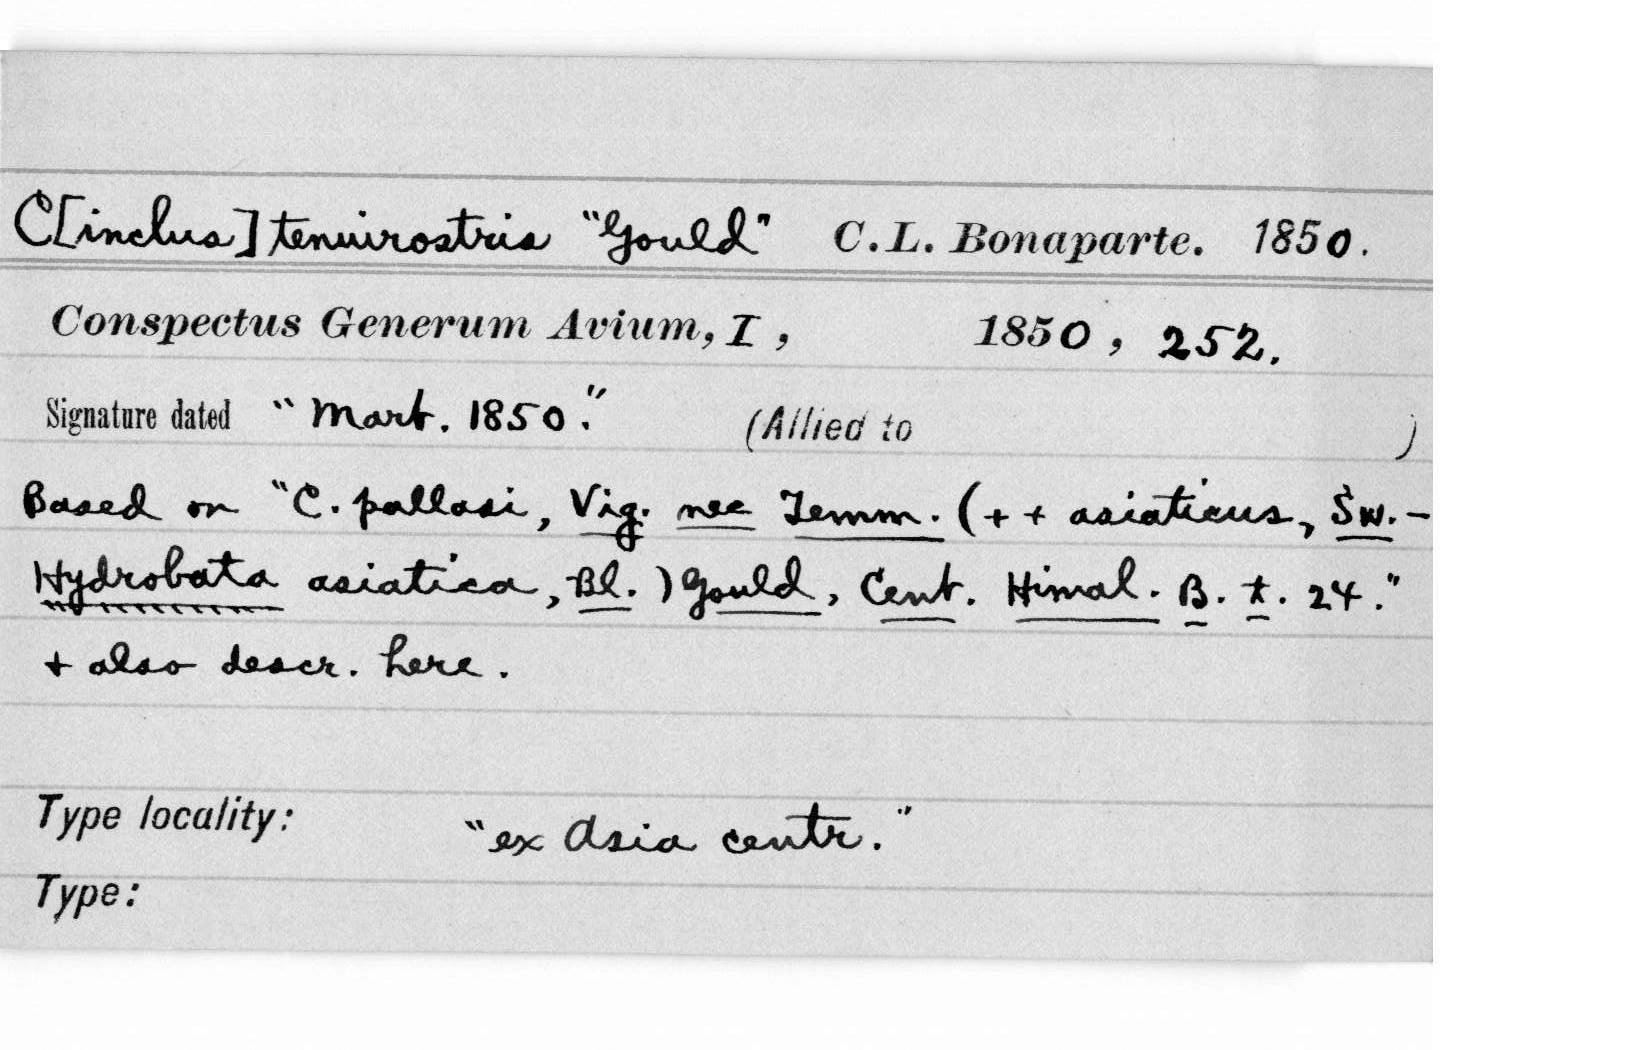 C[inclus] tenuirostris "Gould" C.L. Bonaparte. 1850.
Conspectus Generum Avium, I, 1850, 252.
Signature dated "Mart. 1850." (Allied to )
Based on "C. pallasi, Vig. nec Temm. (+ + asiaticus, Sw. –
Hydrobata asiatica, Bl.) Gould, Cent. Himal. B. t. 24."
+ also descr. here.
Type locality: "ex Asia centr."
Type: